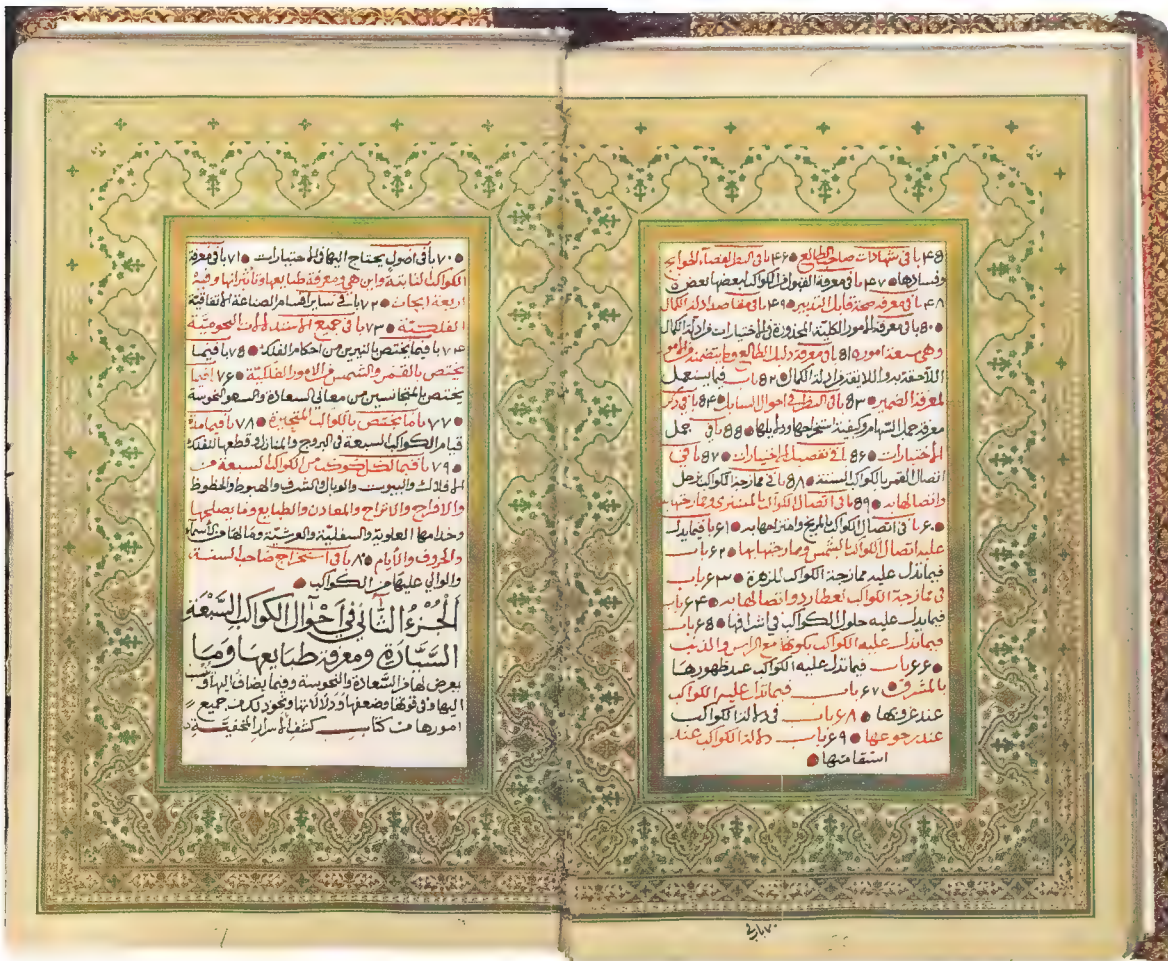 ۴۵ باب فى شهادات صاحب الطالع ● ۴۶ باب فى النظر لقضاء الحوايج
وفسادها ● ۴۷ باب فى معرفة القبول الكواكب بعضها بعض
۴۸ باب فى معرفة صحة قابل التدبير ● ۴۹ باب فى مقاصد ادلة الكمال
● ۵۰ باب فى معرفة الامور الكلية المحذورة فى الاختيارات من ادلة الكمال
وهى سبعة امور ● ۵۱ باب فى معرفة دليل الطالع وما يتضمنه من الامور
اللاحقة به واللايقة من ادلة الكمال ● ۵۲ باب فيما يستعمل
لمعرفة الضمير ● ۵۳ باب فى النظر فى احوال السايل ● ۵۴ باب فى ذكر
معرفة جمل السهام وكيفية استخراجها ودلايلها ● ۵۵ باب فى جمل
الاختيارات ● ۵۶ باب فى تفصيل الاختيارات ● ۵۷ باب فى
اتصال القمر بالكواكب الستة ● ۵۸ باب فى ممازجة الكواكب لزحل
واتصالها به ● ۵۹ باب فى اتصال الكواكب بالمشترى وممازجتها به
● ۶۰ باب فى اتصال الكواكب بالمريخ وامتزاجها به ● ۶۱ باب فيما يدل
عليه اتصال الكواكب بالشمس وممازجتها بها ● ۶۲ باب
فيما تدل عليه ممازجة الكواكب للزهرة ● ۶۳ باب
فى ممازجة الكواكب لعطارد واتصالها به ● ۶۴ باب
فيما يدل عليه حلول الكواكب فى اشرافها ● ۶۵ باب
فيما تدل عليه الكواكب بكونها مع الراس والذنب
● ۶۶ باب فيما تدل عليه الكواكب عند ظهورها
بالمشرق ● ۶۷ باب فيما تدل عليه الكواكب
عند غروبها ● ۶۸ باب فى دلالة الكواكب
عند رجوعها ● ۶۹ باب دلالة الكواكب عند
استقامتها ●
۷۰ باب فى
● ۷۰ باب فى اصول يحتاج اليها فى الاختيارات ● ۷۱ باب فى معرفة
الكواكب الثابتة واين هى ومعرفة طبايعها وتاثيراتها وفيه
اربعة ابحاث ● ۷۲ باب فى ساير اقسام الصناعة الاتفاقية
الفلكية ● ۷۳ باب فى جميع الاستدلالات النجومية
۷۴ باب فيما يختص بالنيرين من احكام الفلك ● ۷۵ باب فيما
يختص بالقمر والشمس من الامور الفلكية ● ۷۶ فيما
يختص بالمتجانسين من معانى السعادة والسعو والنحوسة
● ۷۷ باب ما يختص بالكواكب المتحيرة ● ۷۸ باب فيما مدة
قيام الكواكب السبعة فى البروج والمنازل وقطعها للفلك
● ۷۹ باب فيما لكل كوكب من الكواكب السبعة من
الافلاك والبيوت والوبال والشرف والهبوط والحظوظ
والافراح والاتراح والمعادن والطبايع وما يصلحها
وخدامها العلوية والسفلية والعرشية وما لها من الاسماء
والحروف والايام ● ۸۰ باب فى استخراج صاحب السنة
والوالى عليها من الكواكب ●
اَلْجُزْءُ الثَّانِى فِى اَحْوَالِ الكواكب السَّبْعَة
السَّيَّارَة ومعرفة طبايعها وَمَا
يعرض لها من السَّعادة والنحوسة وفيما يضاف اليها وينسب
اليها وفى قوتها وضعفها ودلالاتها ونحو ذلك من جميع
امورها من كتاب كشف الاسرار المخفيّة